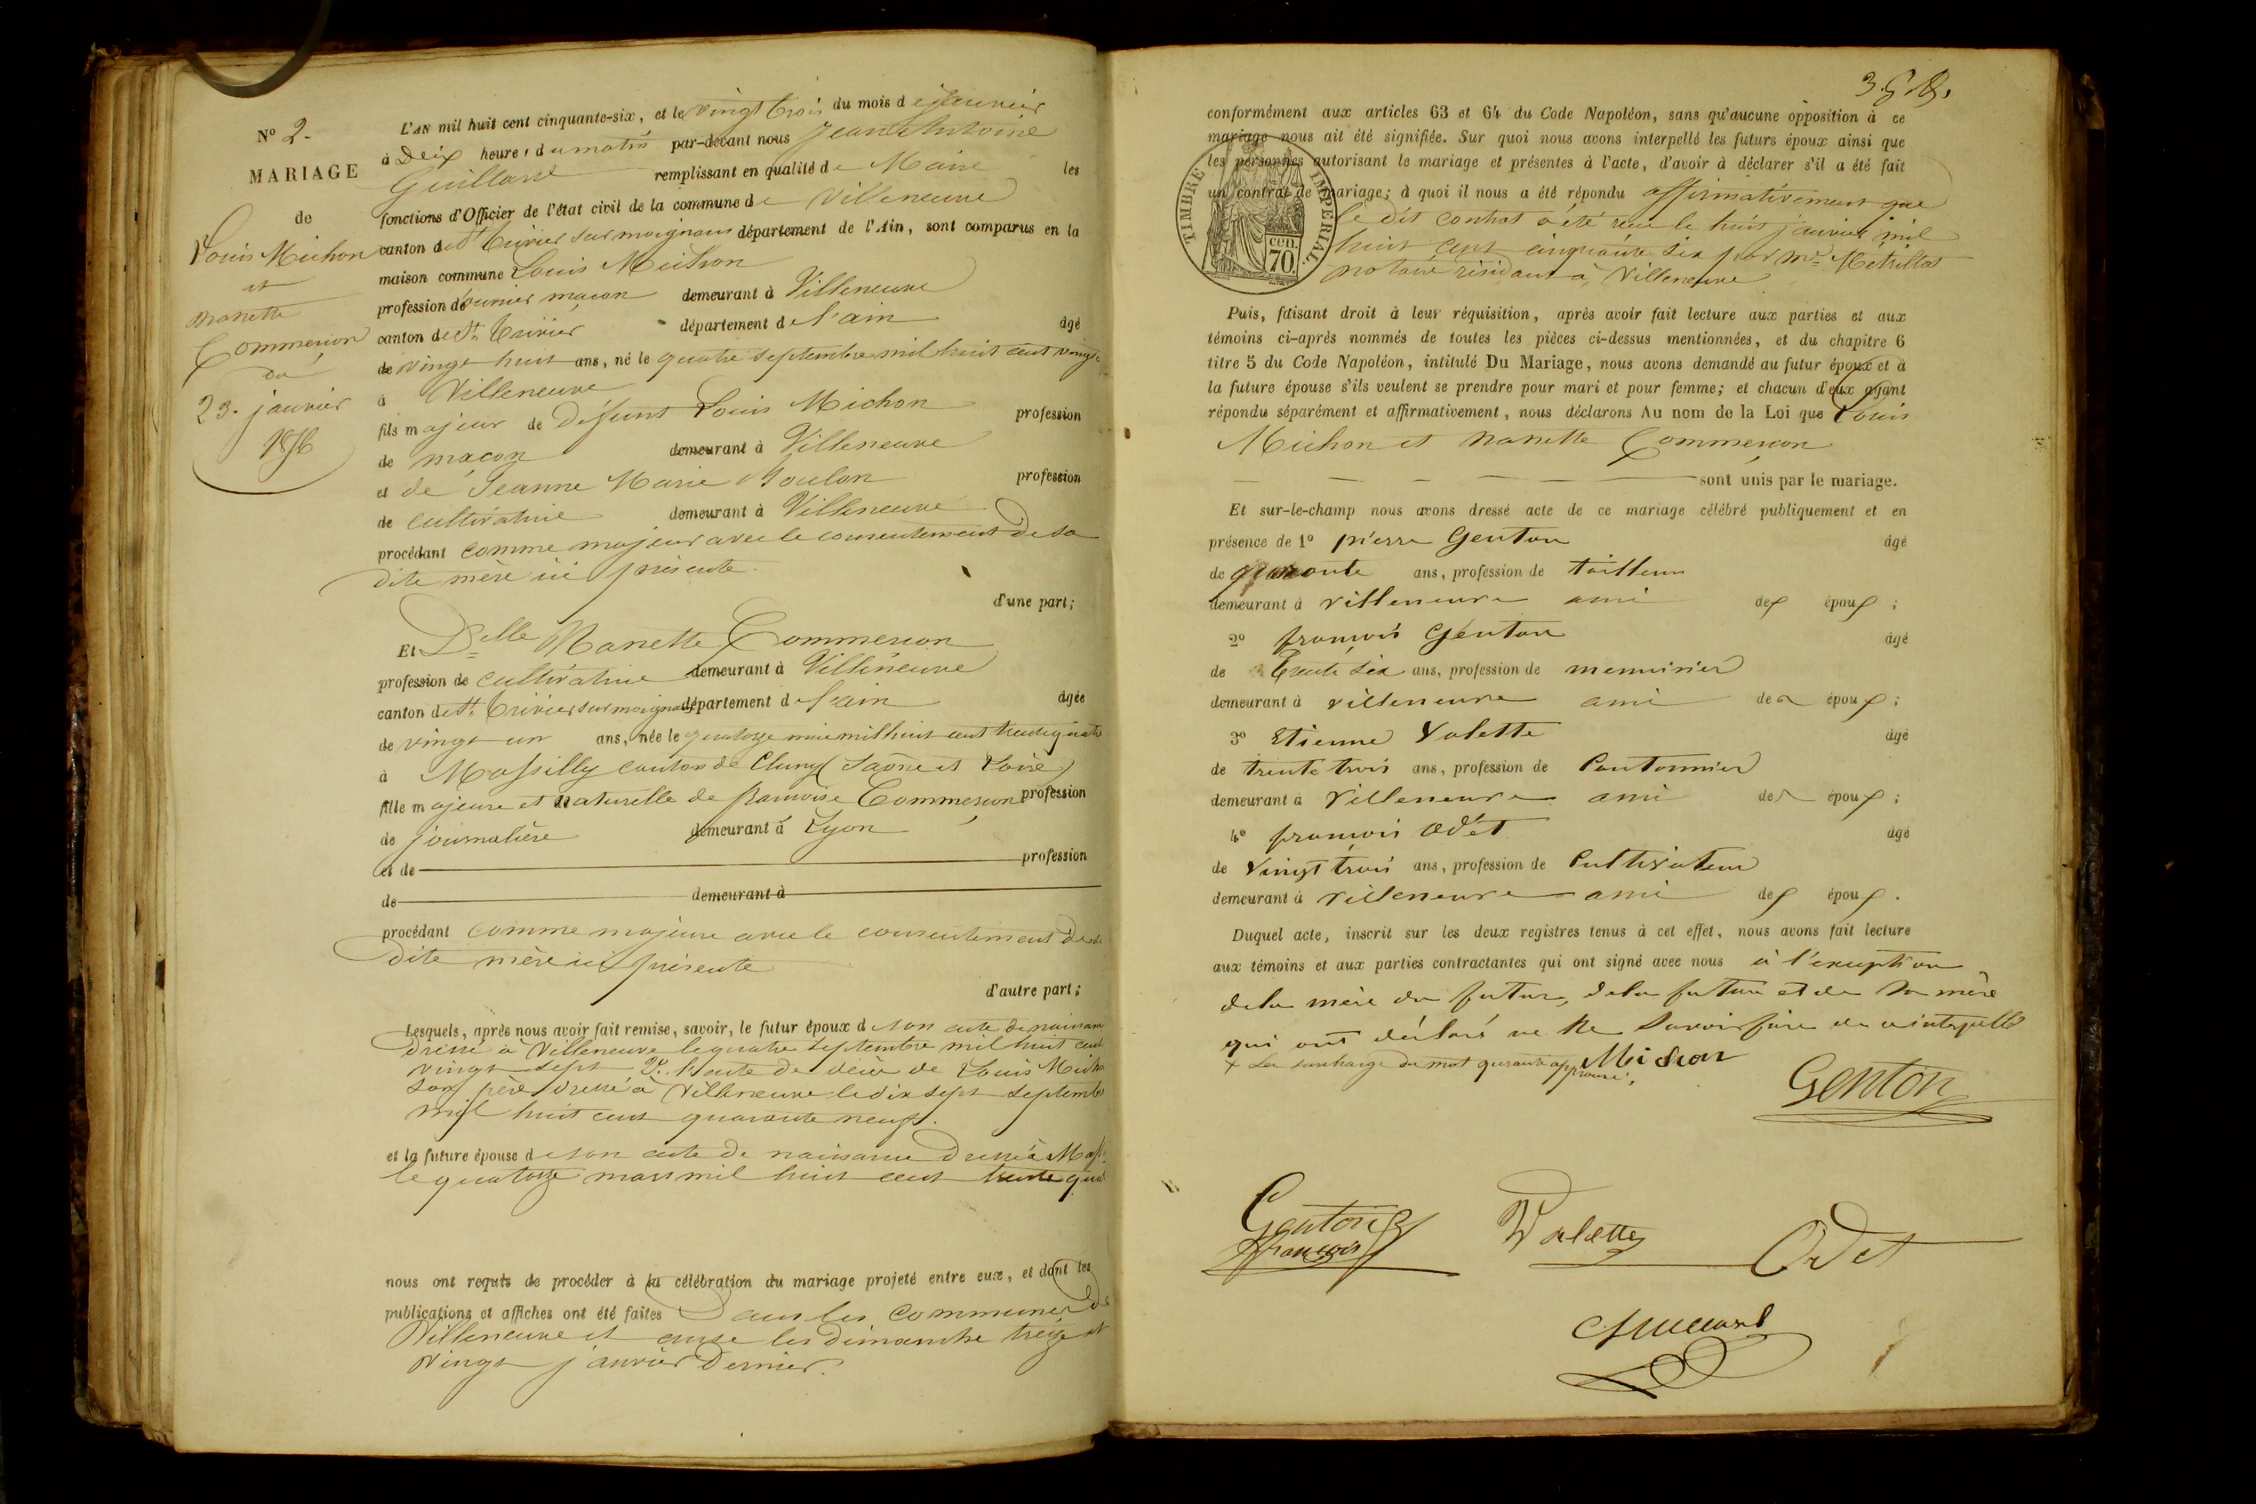 N° 2.
MARIAGE
de
Louis Michon
et
Nanette
Commerçon
du
23. janvier
1856
L'AN mil huit cent cinquante-six, et le vingt trois du mois de janvier
à dix heures du matin par-devant nous Jean Antoine
Guillard remplissant en qualité de Maire les
fonctions d'Officier de l'état civil de la commune de Villeneuve
canton de St Trivier sur moignans département de l'Ain, sont comparus en la
maison commune Louis Michon
profession d'ouvrier maçon demeurant à Villeneuve
canton de St Trivier département de l'ain âgé
de vingt huit ans, né le quatre septembre mil huit cent vingt
à Villeneuve
fils majeur de défunt Louis Michon profession
de maçon demeurant à Villeneuve
et de Jeanne Marie profession
de cultivatrice demeurant à Villeneuve
procédant comme majeur avec le consentement de sa
dite mère ici présente.
d'une part;
Et Delle Nanette Commerçon
profession de cultivatrice demeurant à Villeneuve
canton de St. Trivier sur moignans département de l'ain âgée
de vingt un ans, née le quatorze mil huit cent trente quatre
à Massilly canton de Cluny (Saône et Loire)
fille majeure et naturelle de françoise Commerçon profession
de journalière demeurant à Lyon
et de profession
de demeurant à
procédant comme majeure avec le consentement de sa
dite mère ici présente
d'autre part;
Lesquels, après nous avoir fait remise, savoir, le futur époux de son acte de naissance
dressé à Villeneuve le quatre septembre mil huit cent
vingt sept 2° l'acte de décès de Louis Michon
son père dressé à Villeneuve le dix sept septembre
mil huit cent quarante neuf.
et la future épouse de son acte de naissance dressé à
le quatorze mars mil huit cent trente
nous ont requis de procéder à la célébration du mariage projeté entre eux, et dont les
publications et affiches ont été faites dans les communes de
Villeneuve et les dimanche treize et
vingt janvier dernier.
conformément aux articles 63 et 64 du Code Napoléon, sans qu'aucune opposition à ce
mariage nous ait été signifiée. Sur quoi nous avons interpellé les futurs époux ainsi que
les personnes autorisant le mariage et présentes à l'acte, d'avoir à déclarer s'il a été fait
un contrat de mariage; à quoi il nous a été répondu affirmativement que
le dit contrat a été reçu le huit janvier mil
huit cent cinquante six par Me. Métrillot
notaire résidant à Villeneuve
TIMBRE IMPÉRIAL
CEN.
70
Puis, faisant droit à leur réquisition, après avoir fait lecture aux parties et aux
témoins ci-après nommés de toutes les pièces ci-dessus mentionnées, et du chapitre 6
titre 5 du Code Napoléon, intitulé Du Mariage, nous avons demandé au futur époux et à
la future épouse s'ils veulent se prendre pour mari et pour femme; et chacun d'eux ayant
répondu séparément et affirmativement, nous déclarons Au nom de la Loi que Louis
Michon et Nanette Commerçon
sont unis par le mariage.
Et sur-le-champ nous avons dressé acte de ce mariage célébré publiquement et en
présence de 1° pierre Genton âgé
de quarante ans, profession de tailleur
demeurant à villeneuve ami des époux;
2° françois Genton âgé
de Trente six ans, profession de menuisier
demeurant à villeneuve ami des époux;
3° Etienne Valette âgé
de trente trois ans, profession de Cantonnier
demeurant à Villeneuve ami des époux;
4° françois Odet âgé
de vingt trois ans, profession de Cultivateur
demeurant à villeneuve ami des époux.
Duquel acte, inscrit sur les deux registres tenus à cet effet, nous avons fait lecture
aux témoins et aux parties contractantes qui ont signé avec nous à l'exception
de la mère du futur, de la future et de sa mère
qui ont déclaré ne le savoir faire de ce interpellés
+ La surcharge du mot quarante approuvé.
Michon
Genton
Genton
françois
Valette
Odet
Guillard